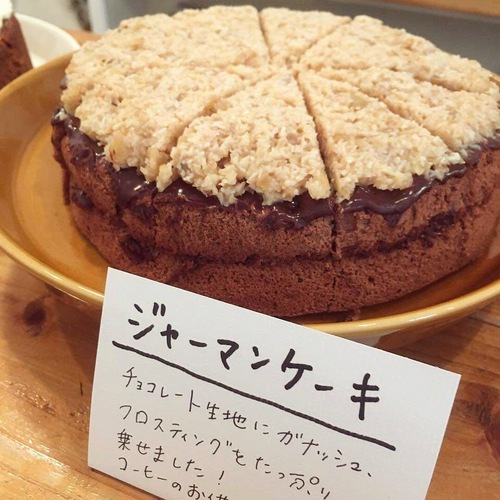 ジャーマンケーキ
チョコレート生地にガナッシュ、
フロスティングをたっぷり
乗せました!
コーヒーのお供